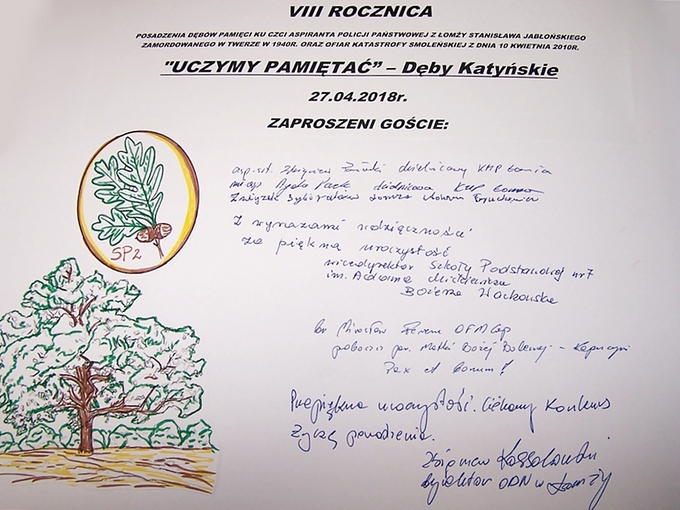 VIII ROCZNICA
POSADZENIA DĘBÓW PAMIĘCI KU CZCI ASPIRANTA POLICJI PAŃSTWOWEJ Z ŁOMŻY STANISŁAWA JABŁOŃSKIEGO
ZAMORDOWANEGO W TWERZE W 1940R. ORAZ OFIAR KATASTROFY SMOLEŃSKIEJ Z DNIA 10 KWIETNIA 2010R.
"UCZYMY PAMIĘTAĆ” – Dęby Katyńskie
27.04.2018r.
ZAPROSZENI GOŚCIE:
SP2
Zbigniew dzielnicowy KMP Łomża
dzielnicowa KMP
Związek Sybiraków Łomża
Z wyrazami wdzięczności
za piękną uroczystość
wicedyrektor Szkoły Podstawowej nr 7
im. Adama Mickiewicza
Bożena Wackowska
Mirosław OFMCap
par. Matki Boskiej Bolesnej -
Pax et bonum!
Przepiękna uroczystość. Ciekawy konkurs
Życzę powodzenia.
Zbigniew
dyrektor ODN w Łomży